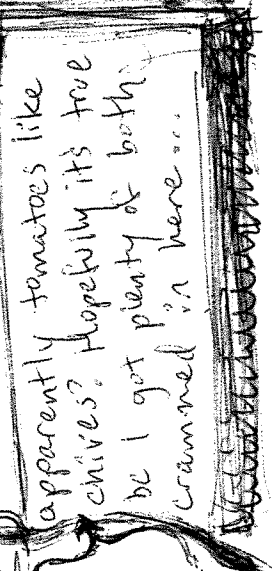 apparently tomatoes like
chives? Hopefully it's true
bc I got plenty of both
crammed in here...